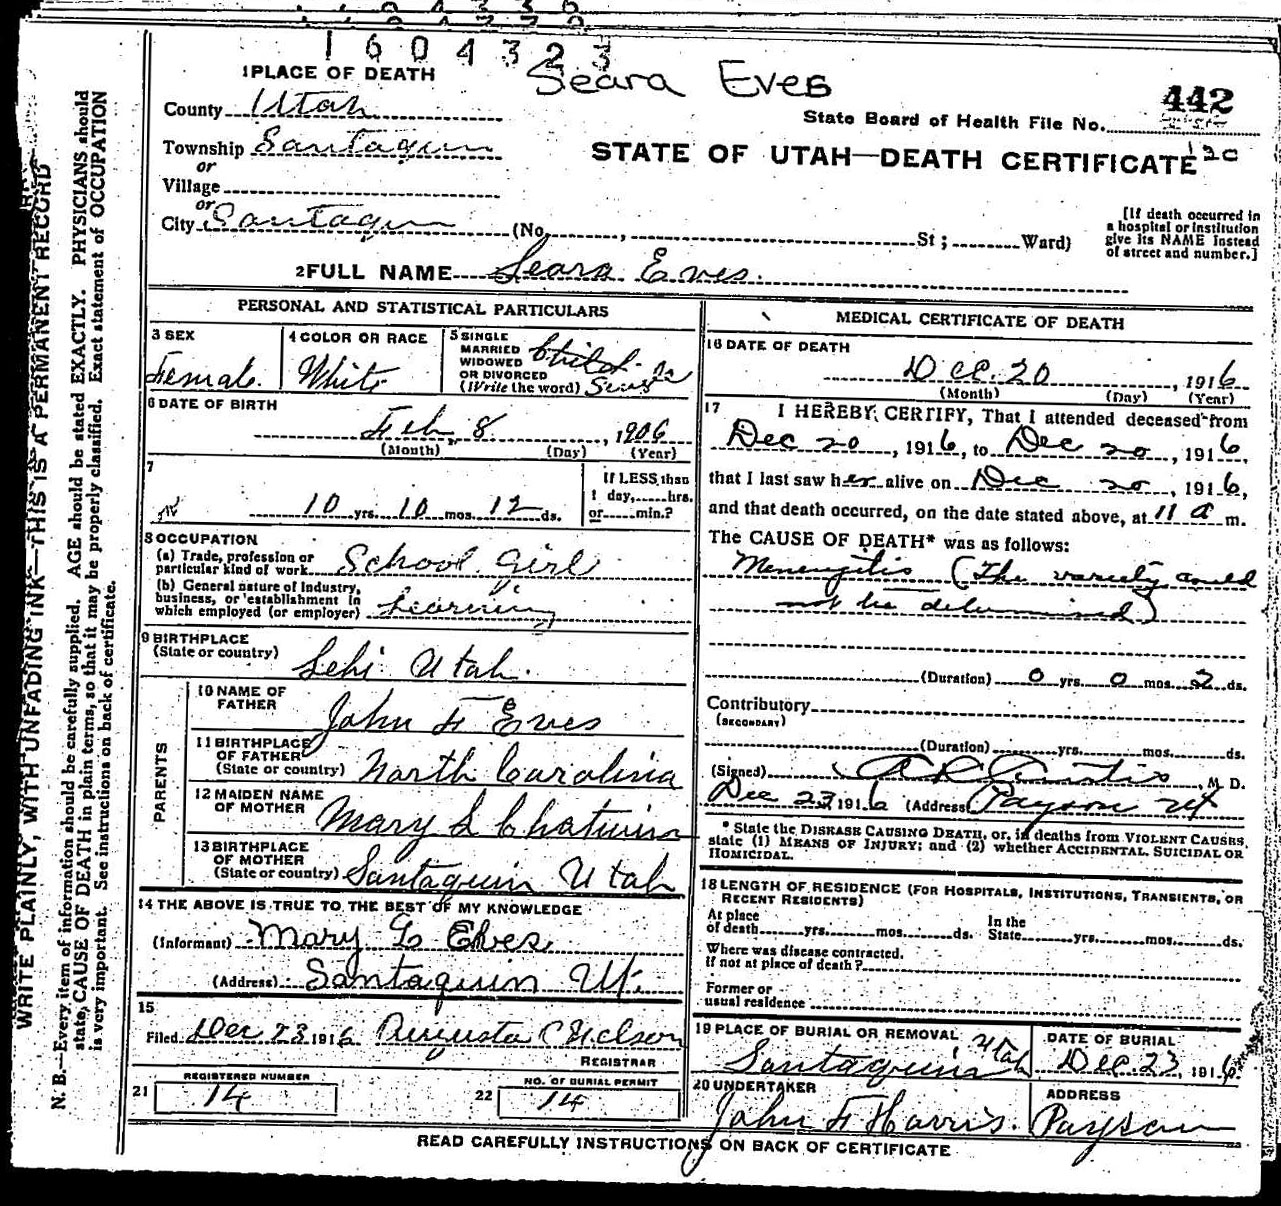 1604323
Seara Eves
1 PLACE OF DEATH
County Utah
442
State Board of Health File No.
Township Santaquin
STATE OF UTAH—DEATH CERTIFICATE
or
Village
or
City Santaquin (No. , St ; Ward)
[If death occurred in
a hospital or institution
give its NAME instead
of street and number.]
2 FULL NAME Seara Eves.
PERSONAL AND STATISTICAL PARTICULARS
3 SEX
Female.
4 COLOR OR RACE
White
5 SINGLE
MARRIED
WIDOWED
OR DIVORCED
(Write the word)
Child
6 DATE OF BIRTH
Feb 8 , 1906
(Month) (Day) (Year)
7
10 yrs. 10 mos. 12 ds.
If LESS than
1 day, hrs.
or min.?
8 OCCUPATION
(a) Trade, profession or
particular kind of work School girl
(b) General nature of Industry,
business, or establishment in
which employed (or employer) Learning
9 BIRTHPLACE
(State or country) Lehi Utah.
PARENTS
10 NAME OF
FATHER John F Eves
11 BIRTHPLACE
OF FATHER
(State or country) North Carolina
12 MAIDEN NAME
OF MOTHER Mary L Chatwin
13 BIRTHPLACE
OF MOTHER
(State or country) Santaquin Utah
14 THE ABOVE IS TRUE TO THE BEST OF MY KNOWLEDGE
(Informant) Mary L Eves.
(Address) Santaquin Ut.
15
Filed Dec 23 1916 Augusta C Nelson
REGISTRAR
21 REGISTERED NUMBER
14
22 NO. OF BURIAL PERMIT
14
MEDICAL CERTIFICATE OF DEATH
16 DATE OF DEATH
Dec. 20 , 1916
(Month) (Day) (Year)
17 I HEREBY CERTIFY, That I attended deceased from
Dec 20 , 1916, to Dec 20 , 1916,
that I last saw her alive on Dec 20 , 1916,
and that death occurred, on the date stated above, at 11 a m.
The CAUSE OF DEATH* was as follows:
Meningitis (The variety could
not be determined)
(Duration) 0 yrs. 0 mos. 2 ds.
Contributory
(SECONDARY)
(Duration) yrs. mos. ds.
(Signed) A R Curtis , M D.
Dec 23, 1916 (Address) Payson Ut
* State the DISEASE CAUSING DEATH, or, in deaths from VIOLENT CAUSES,
state (1) MEANS OF INJURY; and (2) whether ACCIDENTAL, SUICIDAL OR
HOMICIDAL.
18 LENGTH OF RESIDENCE (FOR HOSPITALS, INSTITUTIONS, TRANSIENTS, OR
RECENT RESIDENTS)
At place
of death yrs. mos. ds.
In the
State yrs. mos. ds.
Where was disease contracted.
if not at place of death ?
Former or
usual residence
19 PLACE OF BURIAL OR REMOVAL
Santaquin Utah
DATE OF BURIAL
Dec. 23, 1916
20 UNDERTAKER
John F Harris.
ADDRESS
Payson
READ CAREFULLY INSTRUCTIONS ON BACK OF CERTIFICATE
WRITE PLAINLY, WITH UNFADING INK—THIS IS A PERMANENT RECORD
N. B.—Every item of information should be carefully supplied. AGE should be stated EXACTLY. PHYSICIANS should
state CAUSE OF DEATH in plain terms, so that it may be properly classified. Exact statement of OCCUPATION
is very important. See instructions on back of certificate.